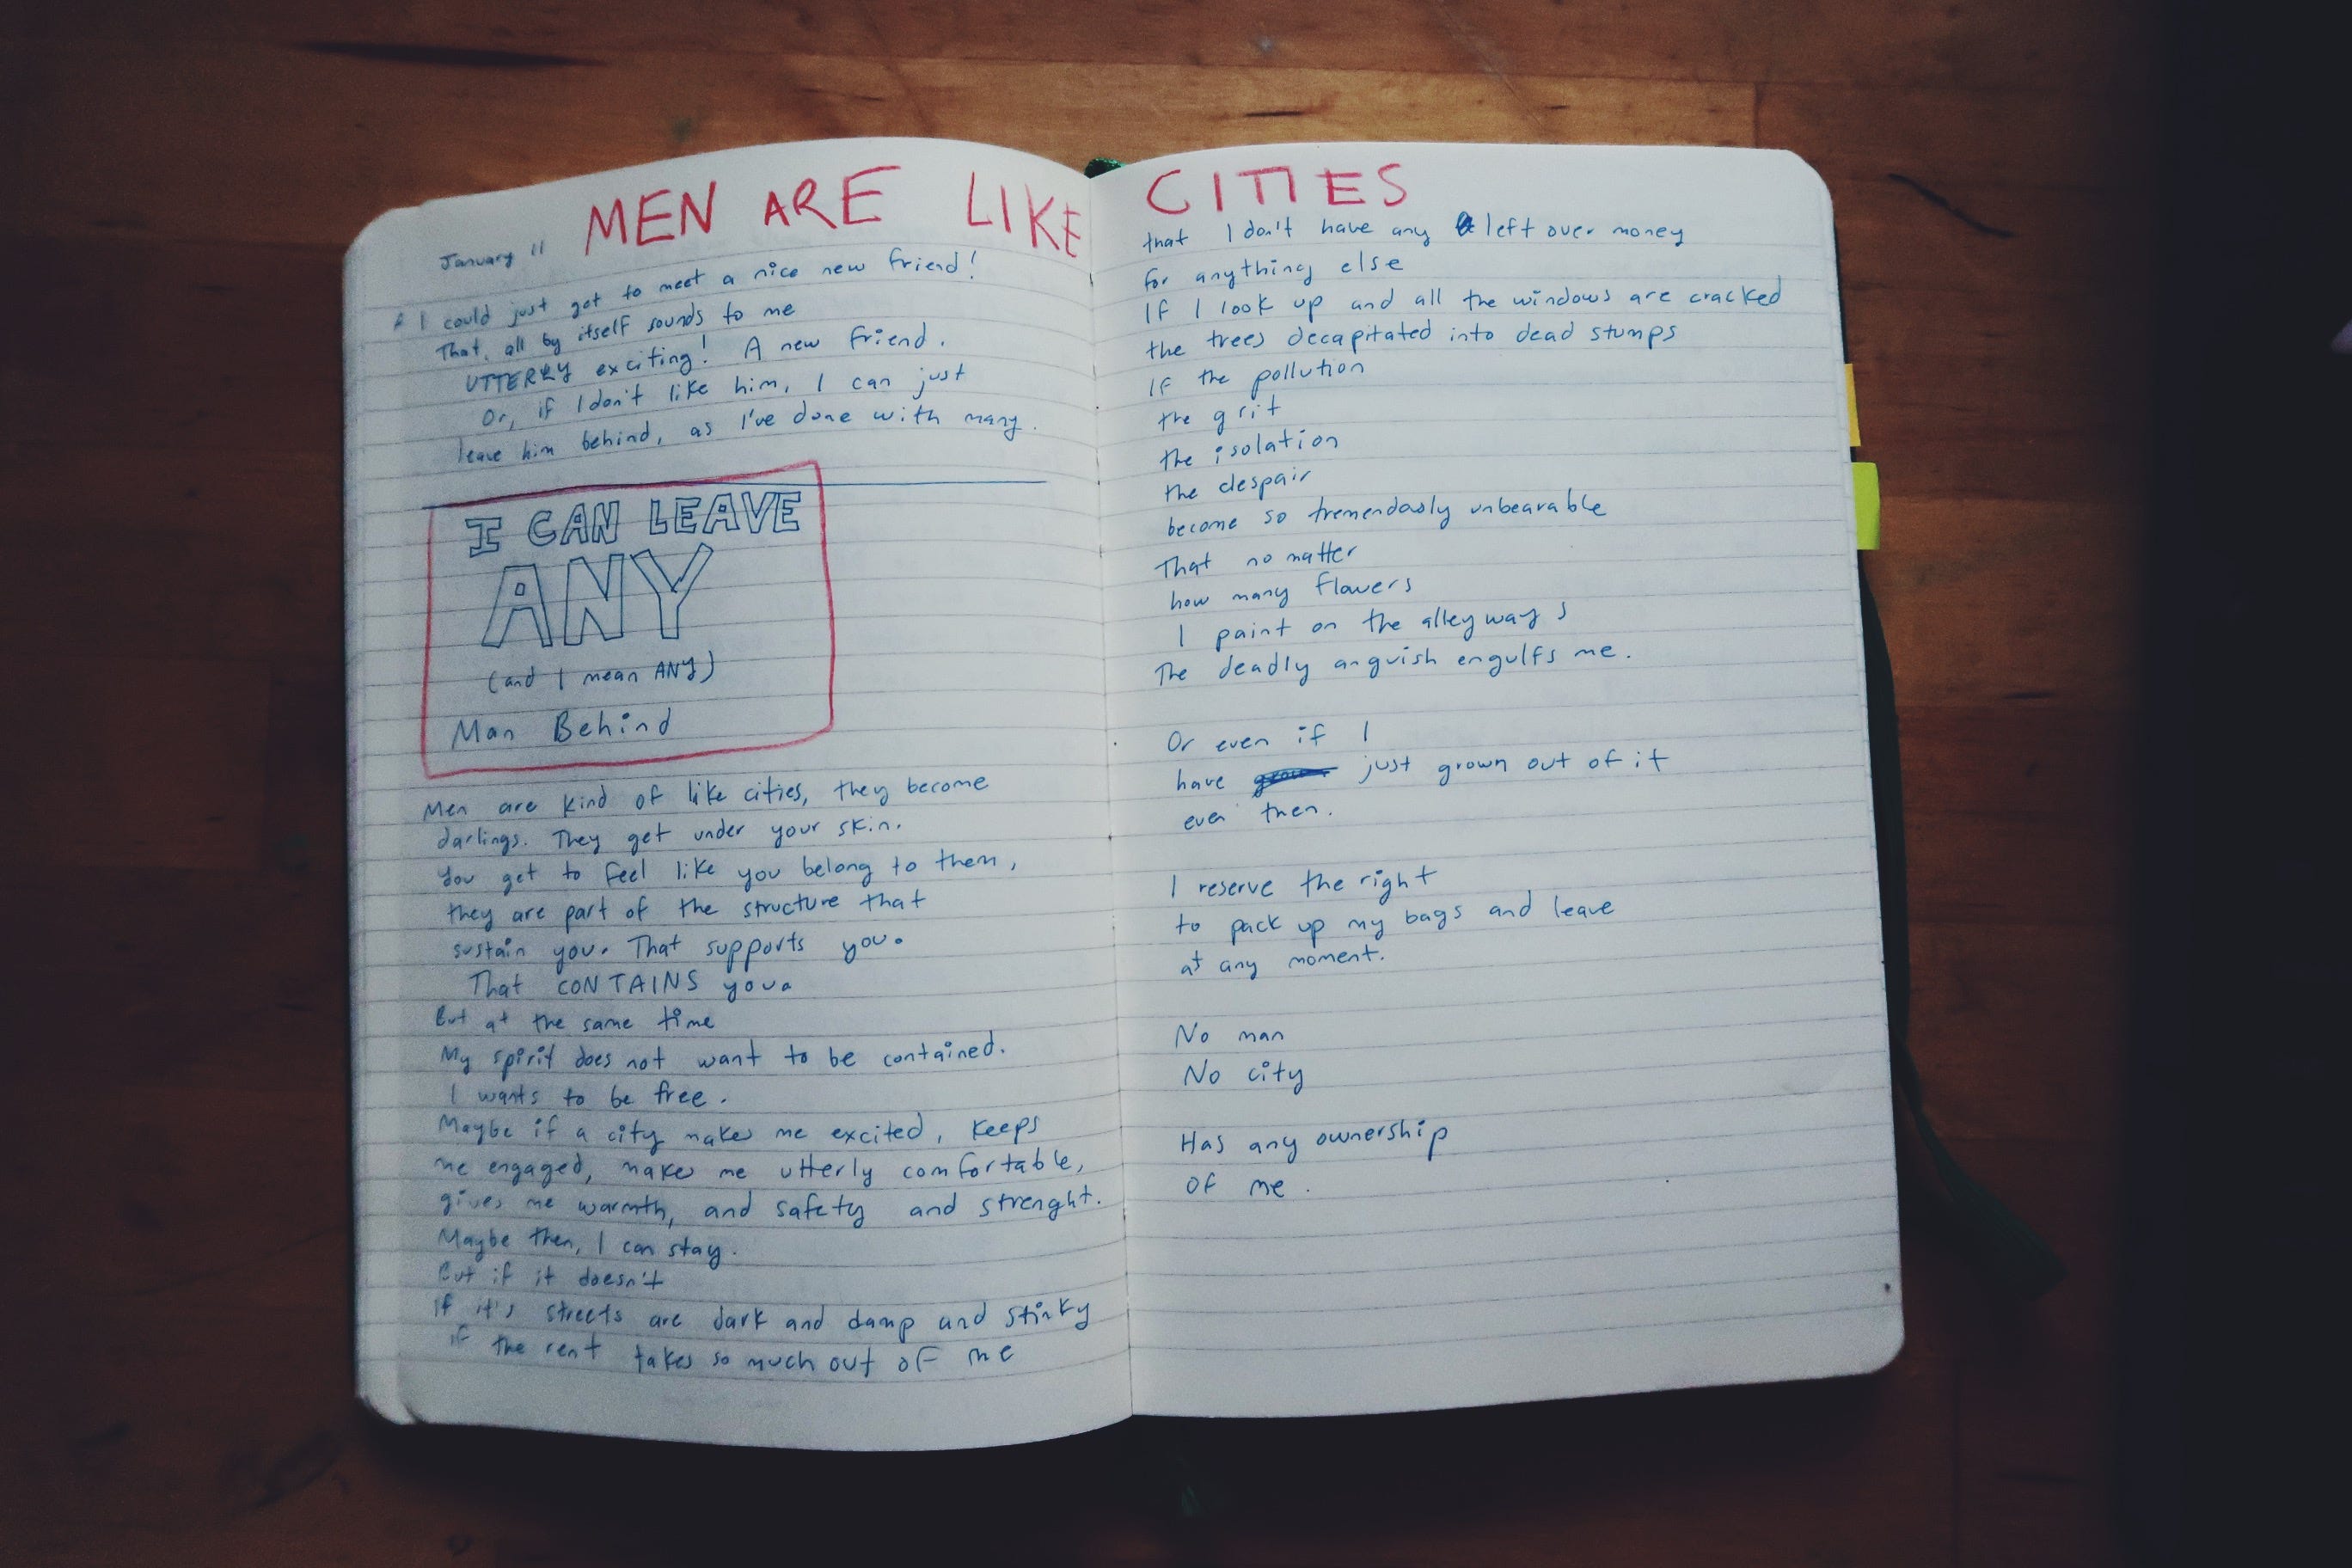 MEN ARE LIKE CITIES
January 11
I could just get to meet a nice new friend!
That, all by itself sounds to me
UTTERLY exciting! A new friend.
Or, if I don't like him, I can just
leave him behind, as I've done with many.
I CAN LEAVE
ANY
(and I mean ANY)
Man Behind
Men are kind of like cities, they become
darlings. They get under your skin.
You get to feel like you belong to them,
they are part of the structure that
sustain you. That supports you.
That CONTAINS you.
But at the same time
My spirit does not want to be contained.
I wants to be free.
Maybe if a city makes me excited, keeps
me engaged, makes me utterly comfortable,
gives me warmth, and safety and strenght.
Maybe then, I can stay.
But if it doesn't
If it's streets are dark and damp and stinky
if the rent takes so much out of me
that I don't have any left over money
for anything else
If I look up and all the windows are cracked
the trees decapitated into dead stumps
If the pollution
the grit
the isolation
the despair
become so tremendously unbearable
That no matter
how many flowers
I paint on the alleyways
The deadly anguish engulfs me.
Or even if I
have just grown out of it
even then.
I reserve the right
to pack up my bags and leave
at any moment.
No man
No city
Has any ownership
of me.